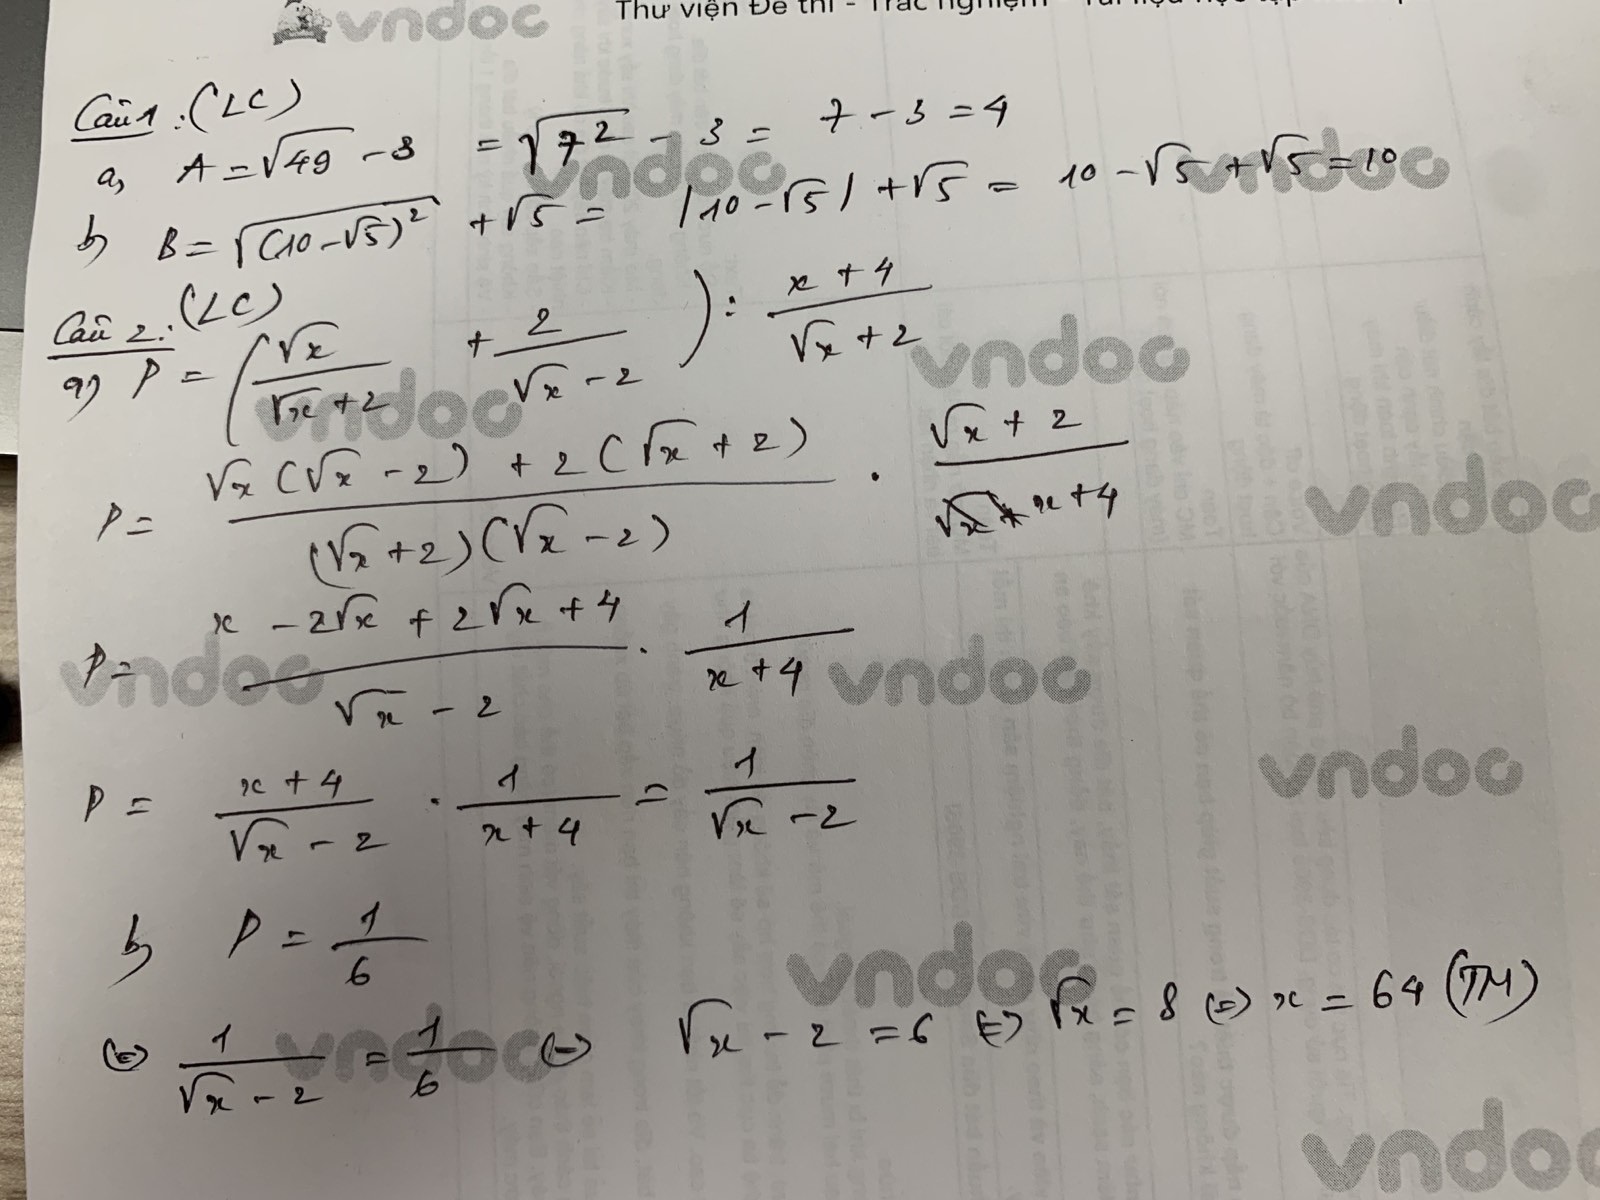 vndoc
Thư viện Đề thi - Trắc nghiệm - Tài liệu học tập
Câu 1: (LC)
a, A = √49 - 3 = √7² - 3 = 7 - 3 = 4
b, B = √(10 - √5)² + √5 = |10 - √5| + √5 = 10 - √5 + √5 = 10
Câu 2: (LC)
a, P = (√x/(√x + 2) + 2/(√x - 2)) : (x + 4)/(√x + 2)
P = (√x (√x - 2) + 2 (√x + 2))/((√x + 2)(√x - 2)) . (√x + 2)/(x + 4)
P = (x - 2√x + 2√x + 4)/(√x - 2) . 1/(x + 4)
P = (x + 4)/(√x - 2) . 1/(x + 4) = 1/(√x - 2)
b, P = 1/6
⇔ 1/(√x - 2) = 1/6 ⇔ √x - 2 = 6 ⇔ √x = 8 ⇔ x = 64 (TM)
vndoc
vndoc
vndoc
vndoc
vndoc
vndoc
vndoc
vndoc
vndoc
vndoc
vndoc